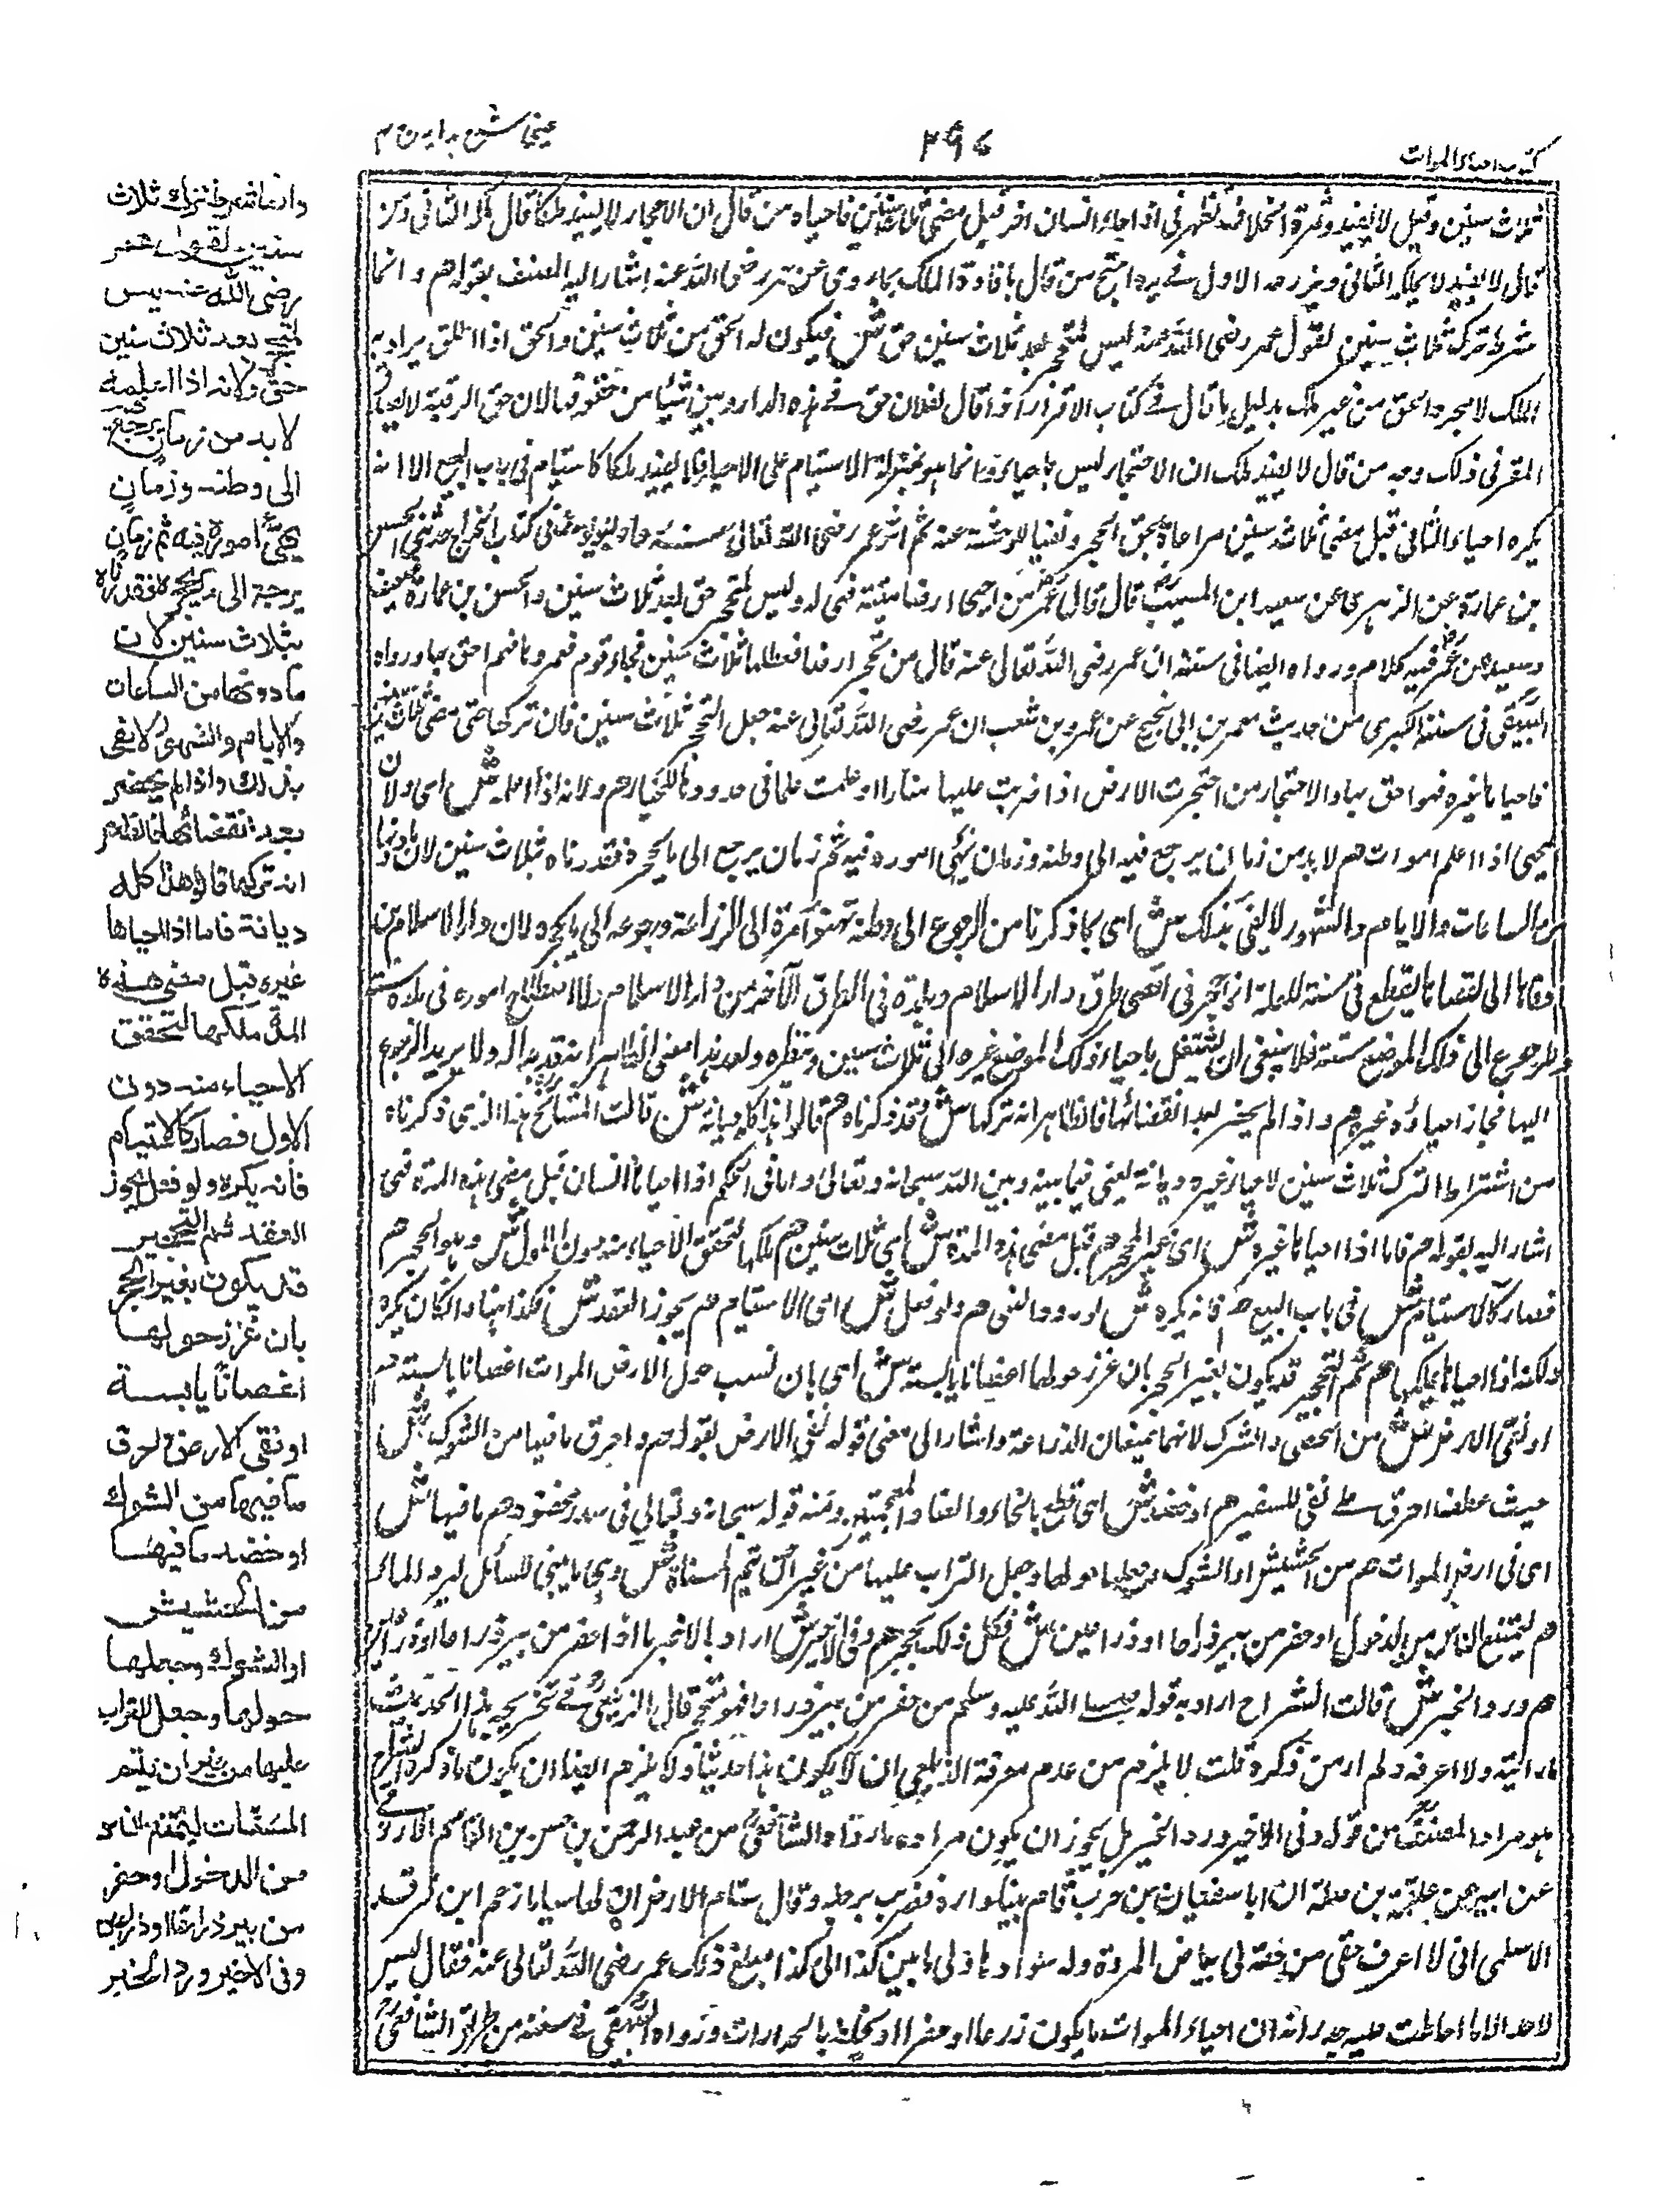 كتاب احياء الموات
٢٩٤
عيني شرح هداية ج ٣
ثلاث سنين وقيل لا يفيد وثمرة الخلاف تظهر في اذا جاء انسان اخر قبل مضي ثلاث سنين فاحياه من قال ان الاحتجار لا يفيد ملكا قال ملكه الثاني ومن
قال لا يفيد لا يملكه الثاني وجه الاول احتج من قال بافادة الملك بما روي عن عمر رضي الله عنه اشار اليه المصنف بقوله هم وانما
شرط ترك ثلاث سنين لقول عمر رضي الله عنه ليس لمتحجر بعد ثلاث سنين حق ش فيكون له الحق من ثلاث سنين والحق اذا اطلق يراد به
الملك لا مجرد الحق من غير ملك بدليل ما قال في كتاب الاقرار اذا قال لفلان حق في هذه الدار وبين شيئا من حقوقها لان حق الرقبة لا
المقر في ذلك وجه من قال لا يفيد ملك ان الاحتجار ليس باحياء وانما هو بمنزلة الاستيام على الاحياء فلا يفيد ملكا كالاستيام في باب البيع الا انه
يكره احياء الثاني قبل مضي ثلاث سنين مراعاة لحق المحجر ونفيا للوحشة عنه ثم اثر عمر رضي الله تعالى عنه رواه ابو يوسف في كتاب الخراج حدثني الحسن
بن عمارة عن الزهري عن سعيد ابن المسيب قال قال عمر من احيا ارضا ميتة فهي له وليس لمتحجر حق بعد ثلاث سنين والحسن بن عمارة ضعيف
وسعيد عن عمر فيه كلام ورواه ايضا في سننه ان عمر رضي الله تعالى عنه قال من تحجر ارضا فعطلها ثلاث سنين فجاء قوم فعمروها فهم احق بها ورواه
البيهقي في سننه الكبرى من حديث معمر بن ابي نجيح عن عمرو بن شعيب ان عمر رضي الله تعالى عنه جعل التحجر ثلاث سنين فان تركها حتى مضى ثلاث سنين
فاحياها غيره فهو احق بها والاحتجار من احتجرت الارض اذا ضربت عليها منارا او علمت علما في حدودها للحيازة هم ولانه اذا اعلمه ش اي ولان
المحيي اذا اعلم الموات هم لا بد من زمان يرجع فيه الى وطنه وزمان يهيئ اموره فيه ثم زمان يرجع الى ما يحجره فقدرناه بثلاث سنين لان ما دونها
من الساعات والايام والشهور لا يفي بذلك ش اي بما ذكرنا من الرجوع الى وطنه تهيئة امره الى الزراعة ورجوعه الى ما يحجره لان دار الاسلام من
الى اقصاها يقطع في سنة فلعله انه تحجر في اقصى طرف دار الاسلام وبلده في الطرف الآخر من دار الاسلام ولاصلاح اموره في بلده سنة
وللرجوع الى ذلك الموضع سنة فلا ينبغي ان يشتغل باحياء ذلك الموضع غيره الى ثلاث سنين وينظره وبعد هذا مضي الظاهر انه قد بدا له ولا يريد الرجوع
اليها فجاز احياؤه غيره هم واذا لم يحضر بعد انقضائها فالظاهر انه تركها ش وقد ذكرناه هم قالوا هذا كله ديانة ش قالت المشايخ هذا الذي ذكرناه
من اشتراط الترك ثلاث سنين لاحياء غيره ديانة يعني فيما بينه وبين الله سبحانه وتعالى واما في الحكم اذا احياها انسان قبل مضي هذه المدة فهي
اشار اليه بقوله هم فاما اذا احياها غيره ش اي غير المحجر هم قبل مضي هذه المدة ش اي ثلاث سنين هم ملكها لتحقق الاحياء منه دون الاول ش وهو المحجر هم
فصار كالاستيام ش في باب البيع هم فانه يكره ش لورود النهي هم ولو فعل ش اي الاستيام هم يجوز العقد ش فكذا هنا وان كان يكره
ولكنه اذا احياها يملكها هم ثم التحجير قد يكون بغير الحجر بان غرز حولها اغصانا يابسة ش اي بان نصب حول الارض الموات اغصانا يابسة هم
او نقى الارض ش من الحصى والشوك لانهما يمنعان الزراعة واشار الى معنى قوله نقى الارض بقوله هم واحرق ما فيها من الشوك ش
حيث عطف احرق على نقى للتفسير هم او خضد ش اي قطع بالخاء والضاد المعجمتين ومنه قوله سبحانه وتعالى في سدر مخضود هم ما فيها ش
اي في ارض الموات هم من الحشيش او الشوك وجعلها حولها وجعل التراب عليها من غير ان يتم المسناة ش وهي ما يبنى للسائل ليرد الماء
هم ليمتنع الناس من الدخول او حفر من بير ذراعا او ذراعين ش فكل ذلك تحجير هم وفي الاخير ش اراد بالاخير ما اذا حفر من بير ذراعا او ذراعين
هم ورد الخبر ش قالت الشراح اراد به قوله صلى الله عليه وسلم من حفر من بير ذراعا فهو متحجر قال الزيلعي في تخريجه هذا الحديث
ما رأيته ولا اعرفه ولم ار من ذكره قلت لا يلزم من عدم معرفة الزيلعي ان لا يكون هذا حديثا ولا يلزم ايضا ان يكون ما ذكره الشراح
هو مراد المصنف من قوله وفي الاخير ورد الخبر بل يجوز ان يكون مراده ما رواه الشافعي من عبد الرحمن بن حسن بن القاسم الازرقي
عن ابيه عن علقمة بن نضلة ان ابا سفيان بن حرب قام بفناء داره فضرب برجله وقال سنام الارض ان لها سناما زعم ابن فرقد
الاسلمي اني لا اعرف حقي من حقه لي بياض المروة وله سوادها ولي ما بين كذا الى كذا فبلغ ذلك عمر رضي الله تعالى عنه فقال ليس
لاحد الا ما احاطت عليه جدرانه ان احياء الموات ما يكون زرعا او حفرا او يحاط بالجدارات ورواه البيهقي في سننه من طريق الشافعي
وانما شرط ترك ثلاث
سنين لقول عمر
رضي الله عنه ليس
لمتحجر بعد ثلاث سنين
حق ولانه اذا اعلمه
لا بد من زمان يرجع فيه
الى وطنه وزمان
يهيئ اموره فيه ثم زمان
يرجع الى ما يحجره فقدرناه
بثلاث سنين لان
ما دونها من الساعات
والايام والشهور لا يفي
بذلك واذا لم يحضر
بعد انقضائها فالظاهر
انه تركها قالوا هذا كله
ديانة فاما اذا احياها
غيره قبل مضي هذه
المدة ملكها لتحقق
الاحياء منه دون
الاول فصار كالاستيام
فانه يكره ولو فعل يجوز
العقد ثم التحجير
قد يكون بغير الحجر
بان غرز حولها
اغصانا يابسة
او نقى الارض واحرق
ما فيها من الشوك
او خضد ما فيها
من الحشيش
او الشوك وجعلها
حولها وجعل التراب
عليها من غير ان يتم
المسنات ليمتنع الناس
من الدخول او حفر
من بير ذراعا او ذراعين
وفي الاخير ورد الخبر